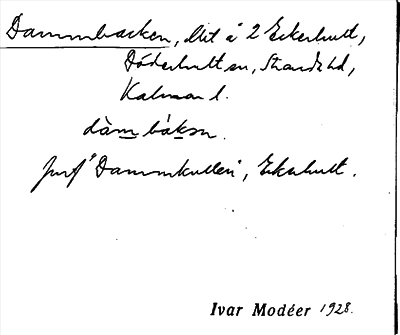 Dammbacken, lht å 2 Ekerhult,
Döderhult sn, Stranda hd,
Kalmar l.
dàm bákən.
Jmf "Dammkullen", Ekerhult.
Ivar Modéer 1928.